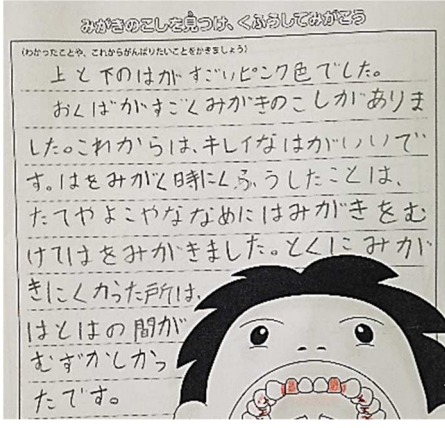 みがきのこしを見つけ、くふうしてみがこう
(わかったことや、これからがんばりたいことをかきましょう)
上と下のはがすごいピンク色でした。
おくばがすごくみがきのこしがありま
した。これからは、キレイなはがいいで
す。はをみがく時にくふうしたことは、
たてやよこやななめにはみがきをむ
けてはをみがきました。とくにみが
きにくかった所は、
はとはの間が
むずかしかっ
たです。